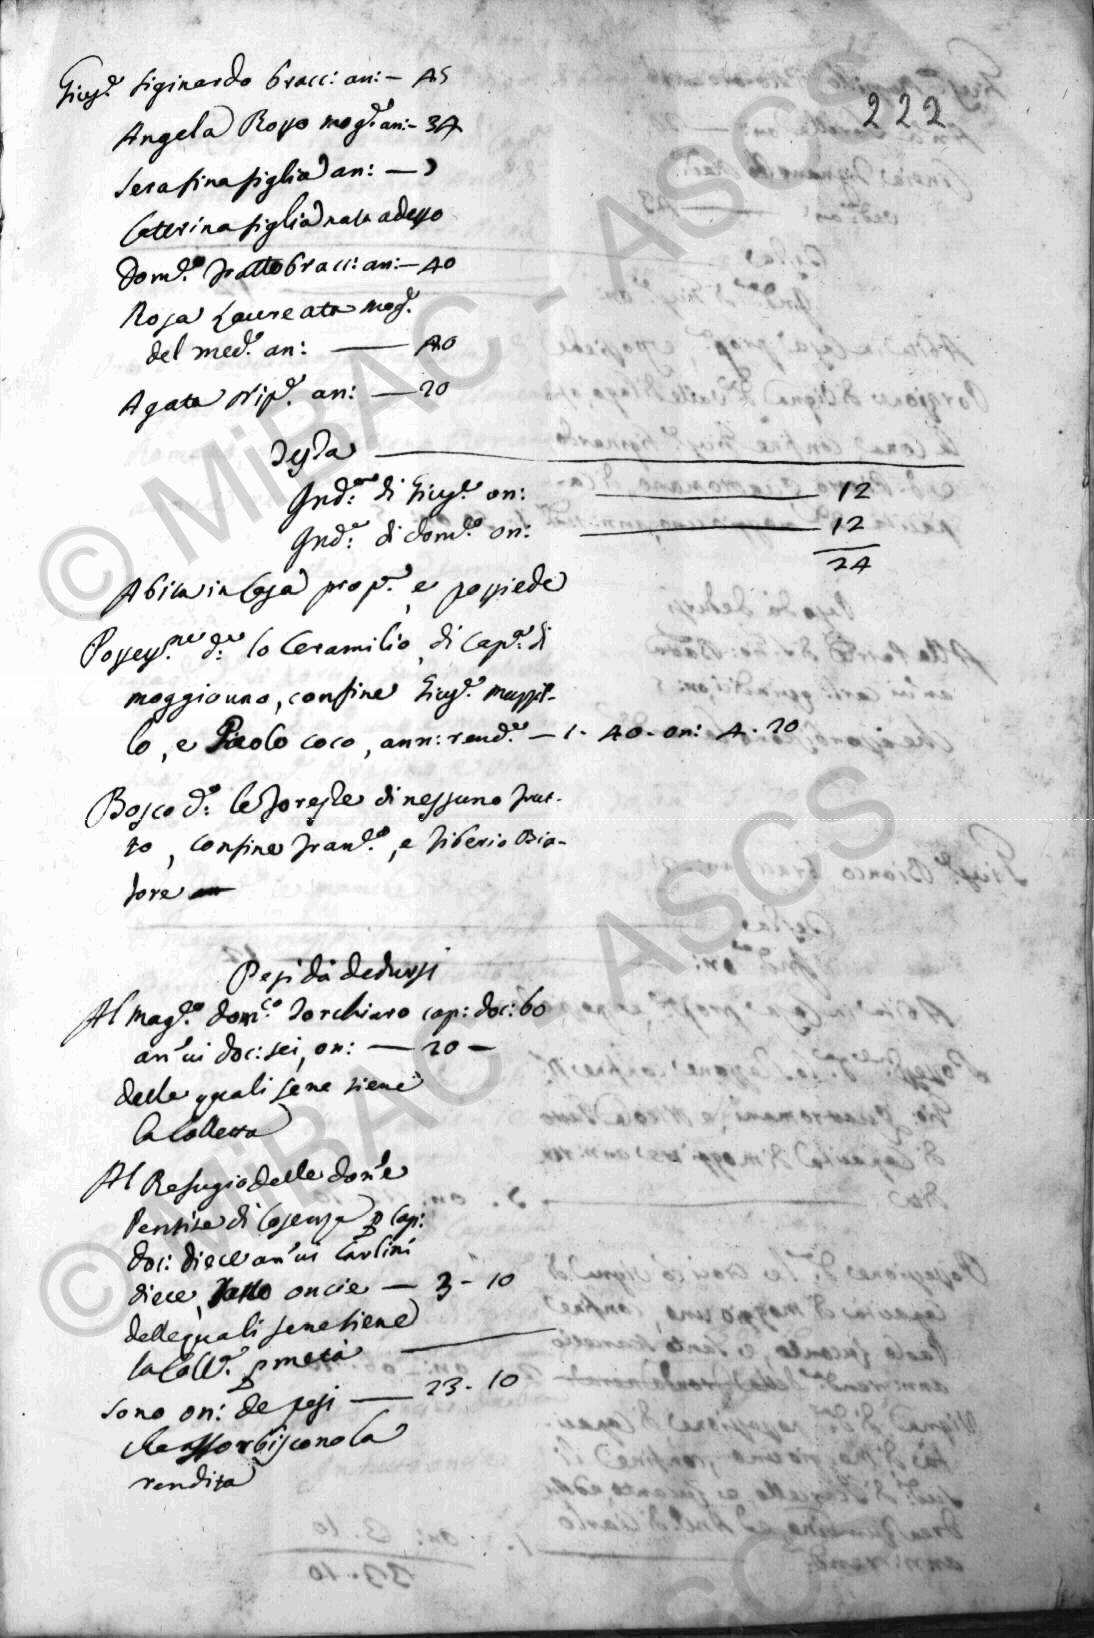 222
Gius.e Siginardo bracci: an: — 45
Angela Rosso mog.e an: — 34
Serafina figlia an: — 3
Caterina figlia nata adesso
Dom.co fratto bracci: an: — 40
Rosa Laureata mog.e
del med.o an: — 40
Agata nip.e an: — 20
Testa
Ind.a di Gius.e on: — 12
Ind.a di Dom.co on: — 12
24
Abita in Casa prop.a, e possiede
Possess.ne d.a lo Ceramilio, di cap.tà di
moggio uno, confine Gius.e
lo, e Paolo Coco, ann: rend.a — 1 - 40 - on: 4 - 20
Bosco d.o le foreste di nessuno frut-
to, confine Fran.co, e Tiberio Bia-
fore
Pesi da dedursi
Al Mag.co Dom.co Torchiaro cap: doc: 60
an'ui doc: sei, on: — 20 —
delle quali sene tiene
la Colletta
Al Refugio delle don'e
Pentite di Cosenza p cap:
doc: diece an'ui Carlini
diece, oncie — 3 - 10
delle quali sene tiene
la Coll.a p metà
Sono on: de pesi — 23 - 10
che assorbiscono la
rendita
© MiBAC - ASCS
© MiBAC - ASCS
ASCS